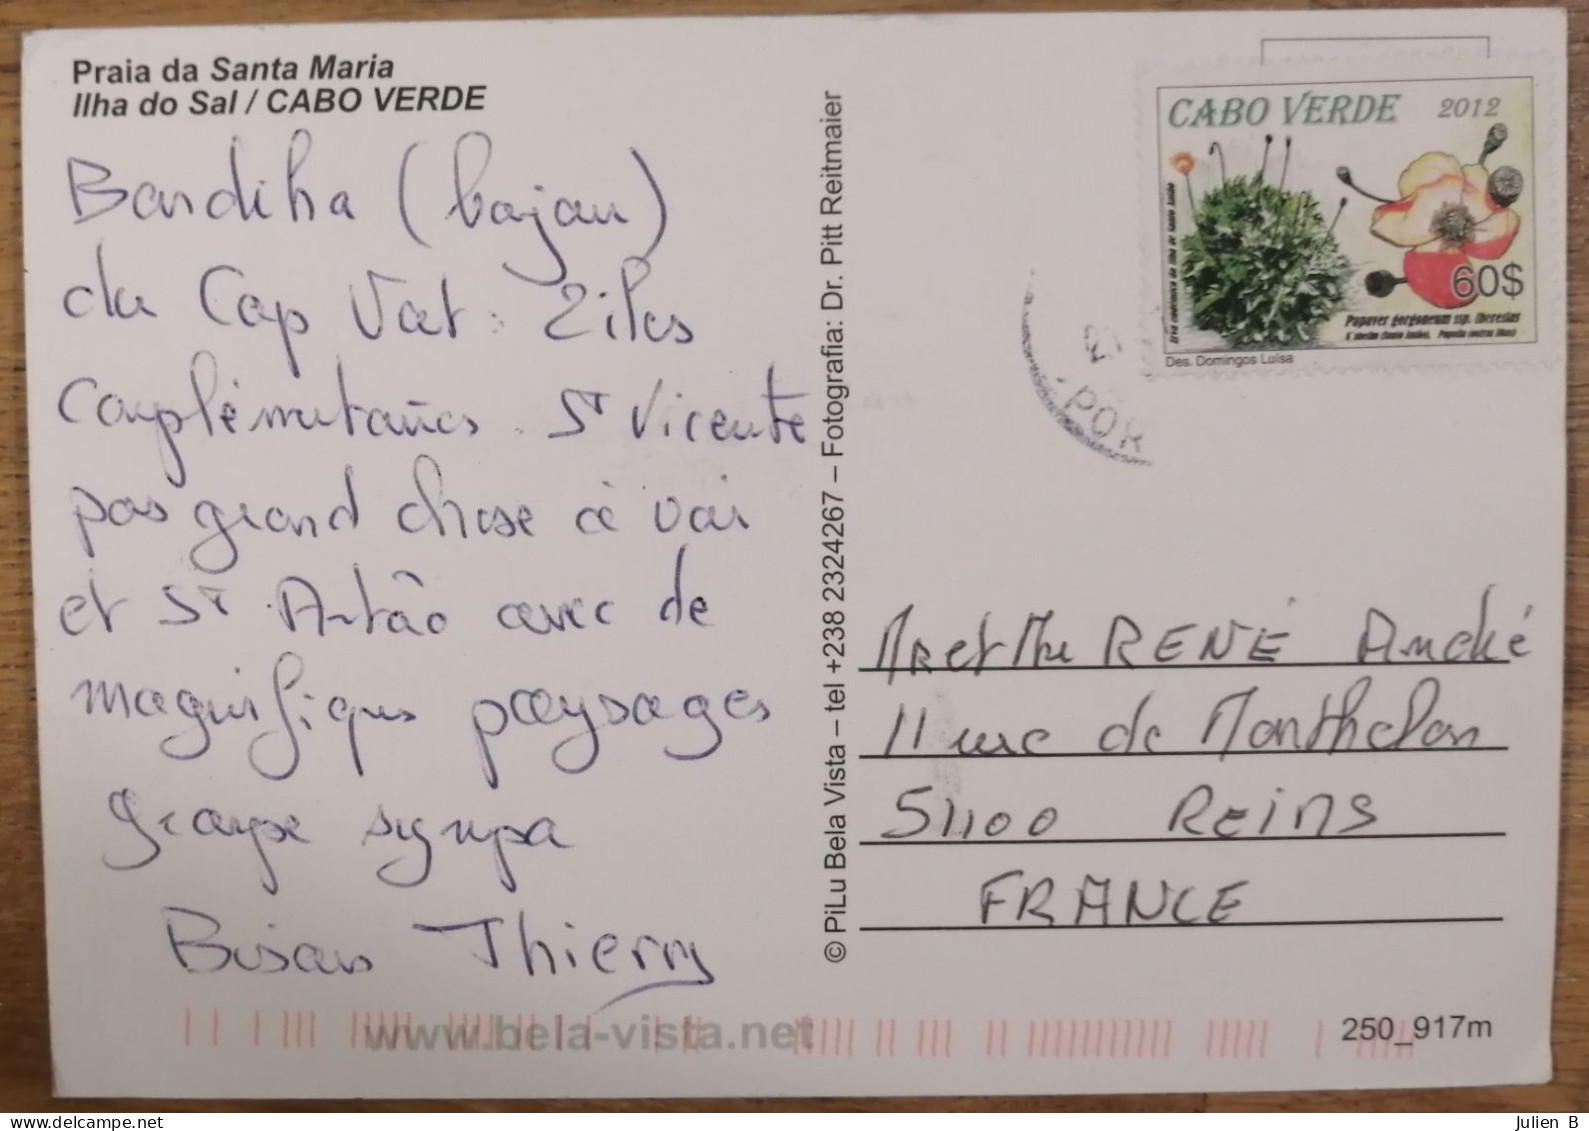 Praia da Santa Maria
Ilha do Sal / CABO VERDE
du Cap Vert. 2 iles
complémentaires. St Vicente
pas grand chose à voir
et St Antão avec de
magnifiques paysages
groupe sympa
Bisous Thierry
www.bela-vista.net
© PiLu Bela Vista – tel +238 2324267 – Fotografia: Dr. Pitt Reitmaier
CABO VERDE 2012
60$
Papaver gorgoneum ssp. theresias
Des. Domingos Luisa
POR
Mr et Mme RENÉ André
11 rue de Monthelon
51100 Reims
FRANCE
250_917m
Julien B